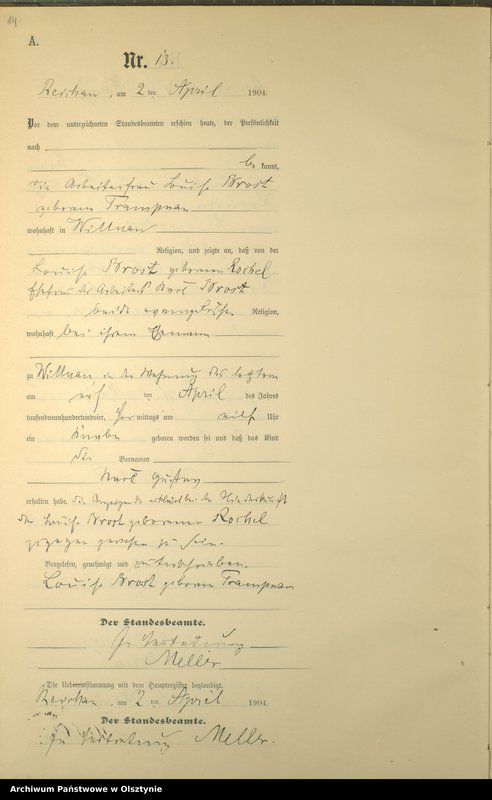 A.
Nr. 13.
am 2 ten April 1904.
Vor dem unterzeichneten Standesbeamten erschien heute, der Persönlichkeit
nach
be kannt,
die Arbeiterfrau Louise Brost
geborene
wohnhaft in Willnau
Religion, und zeigte an, daß von der
Louise Brost geborenen Roehel
Ehefrau des Arbeiters Karl Brost
beide evangelischer Religion,
wohnhaft bei ihrem Ehemann
zu Willnau in der Wohnung des letztern
am ten April des Jahres
tausendneunhundertundvier, Vor mittags um Uhr
ein Knabe geboren worden sei und daß das Kind
die Vornamen
Karl Gustav
erhalten habe. Die Anzeigende erklärt bei der Niederkunft
der Louise Brost geborenen Roehel
zugegen gewesen zu sein.
Vorgelesen, genehmigt und unterschrieben.
Louise Brost geborene
Der Standesbeamte.
In Vertretung
Meller
Die Uebereinstimmung mit dem Hauptregister beglaubigt.
am 2 ten April 1904.
Der Standesbeamte.
In Vertretung Meller.
Archiwum Państwowe w Olsztynie